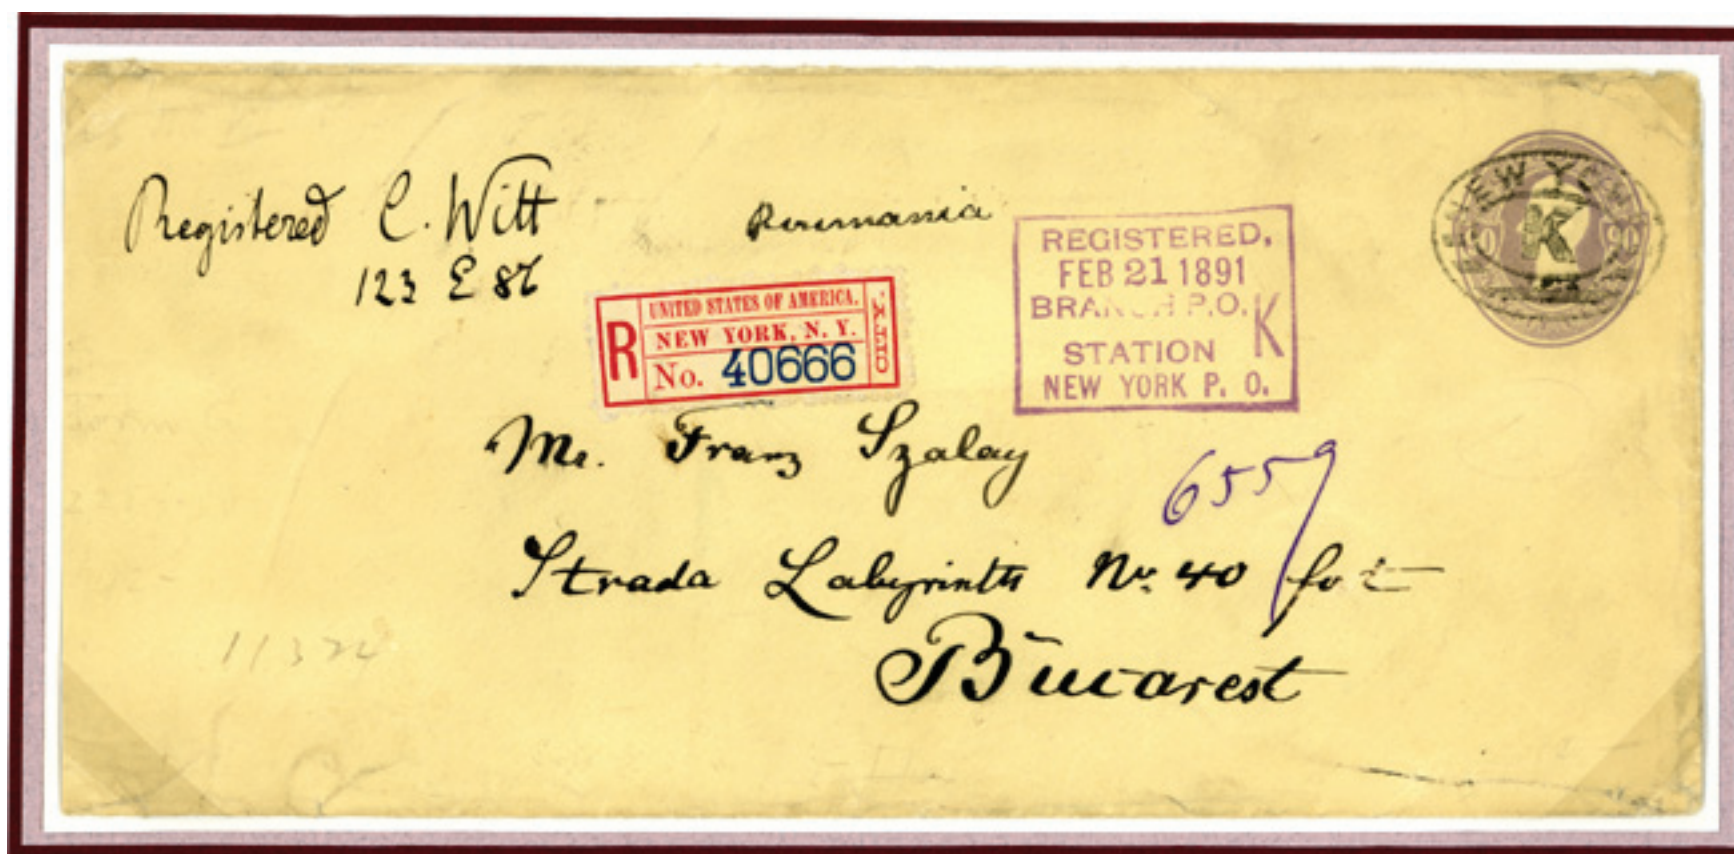 Registered C. Witt
123 E 86
Roumania
NEW YORK
K
90
REGISTERED.
FEB 21 1891
BRANCH P.O. K
STATION
NEW YORK P. O.
R
UNITED STATES OF AMERICA.
NEW YORK, N. Y.
No. 40666
Mr. Franz Szalay
6559
Strada Labyrinth No. 40
Bucarest